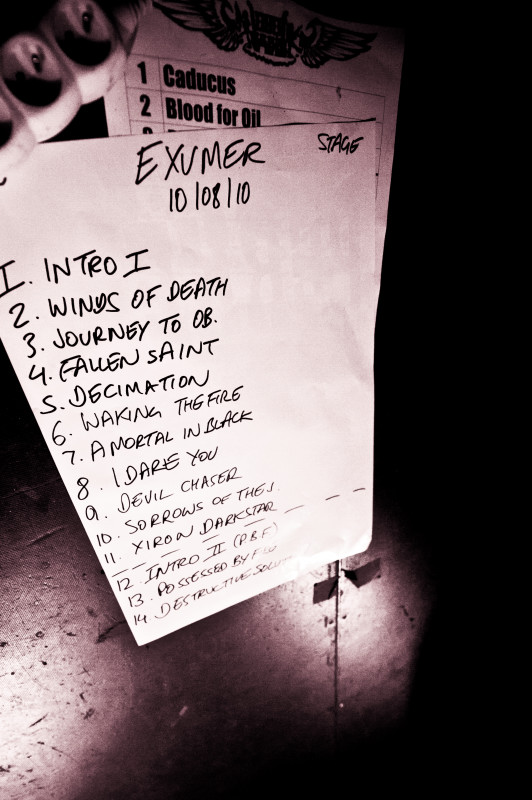 1 Caducus
2 Blood for Oil
EXUMER
STAGE
10/08/10
1. INTRO I
2. WINDS OF DEATH
3. JOURNEY TO OB.
4. FALLEN SAINT
5. DECIMATION
6. WAKING THE FIRE
7. A MORTAL IN BLACK
8. I DARE YOU
9. DEVIL CHASER
10. SORROWS OF THE J.
11. XIRON DARKSTAR
12. INTRO II (P.B.F)
13. POSSESSED BY
14. DESTRUCTIVE